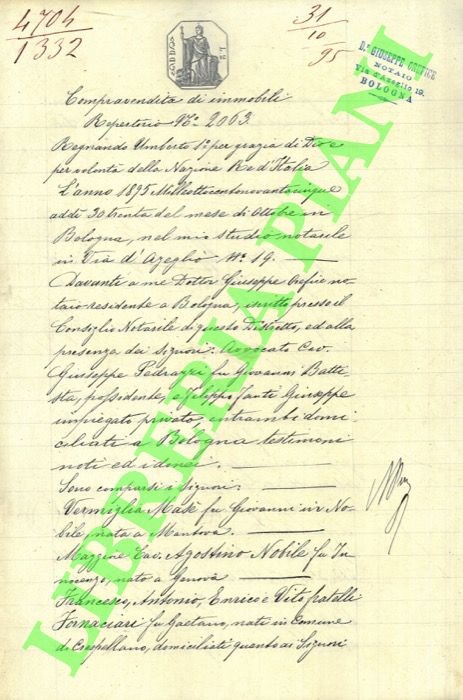 4704
1332
31
10
95
Dr. GIUSEPPE OREFICE
NOTAIO
Via d'Azeglio 19.
BOLOGNA
Compravendita di immobili
Repertorio N.° 2063.
Regnando Umberto I° per grazia di Dio e
per volontà della Nazione Re d'Italia
L'anno 1895 Millottocentonovantacinque
addì 30 trenta del mese di Ottobre in
Bologna, nel mio studio notarile
in Via d'Azeglio N.° 19.
Davanti a me Dottor Giuseppe Orefice no-
taio residente a Bologna, iscritto presso il
Consiglio Notarile di questo Distretto, ed alla
presenza dei signori: Avvocato Cav.
Giuseppe Pedrazzi fu Giovanni Batti
sta, possidente, e Filippo Fanti Giuseppe
impiegato privato, entrambi domi
ciliati a Bologna testimoni
noti ed idonei.
Sono comparsi i Signori:
Vermiglia Masè fu Giovanni in No-
bile, nata a Mantova.
Maggiore Cav. Agostino Nobile fu In
nocenzo, nato a Genova
Francesco, Antonio, Enrico e Vito fratelli
Fornaciari fu Gaetano, nati in Comune
di Crespellano, domiciliati quanto ai Signori
LIBRERIA PIANI